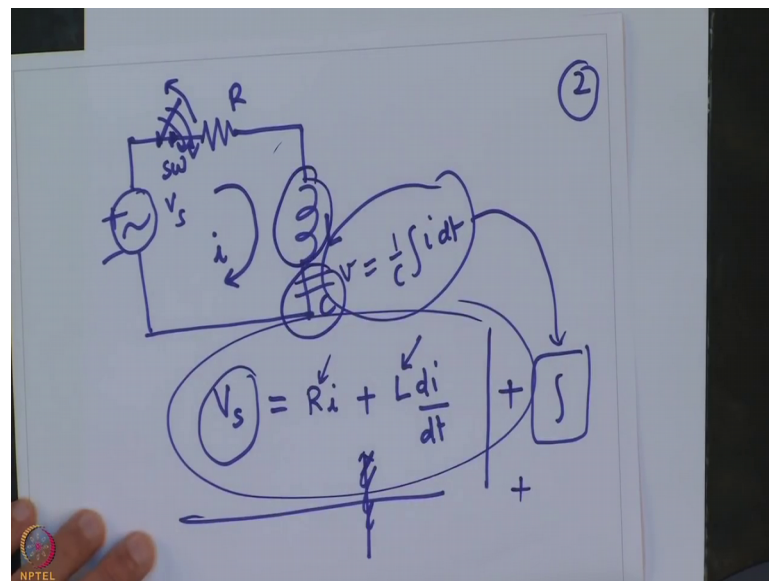 2
R
SW
V_s
i
v = 1/C ∫ i dt
C
V_s = Ri + L di/dt + ∫
+
NPTEL